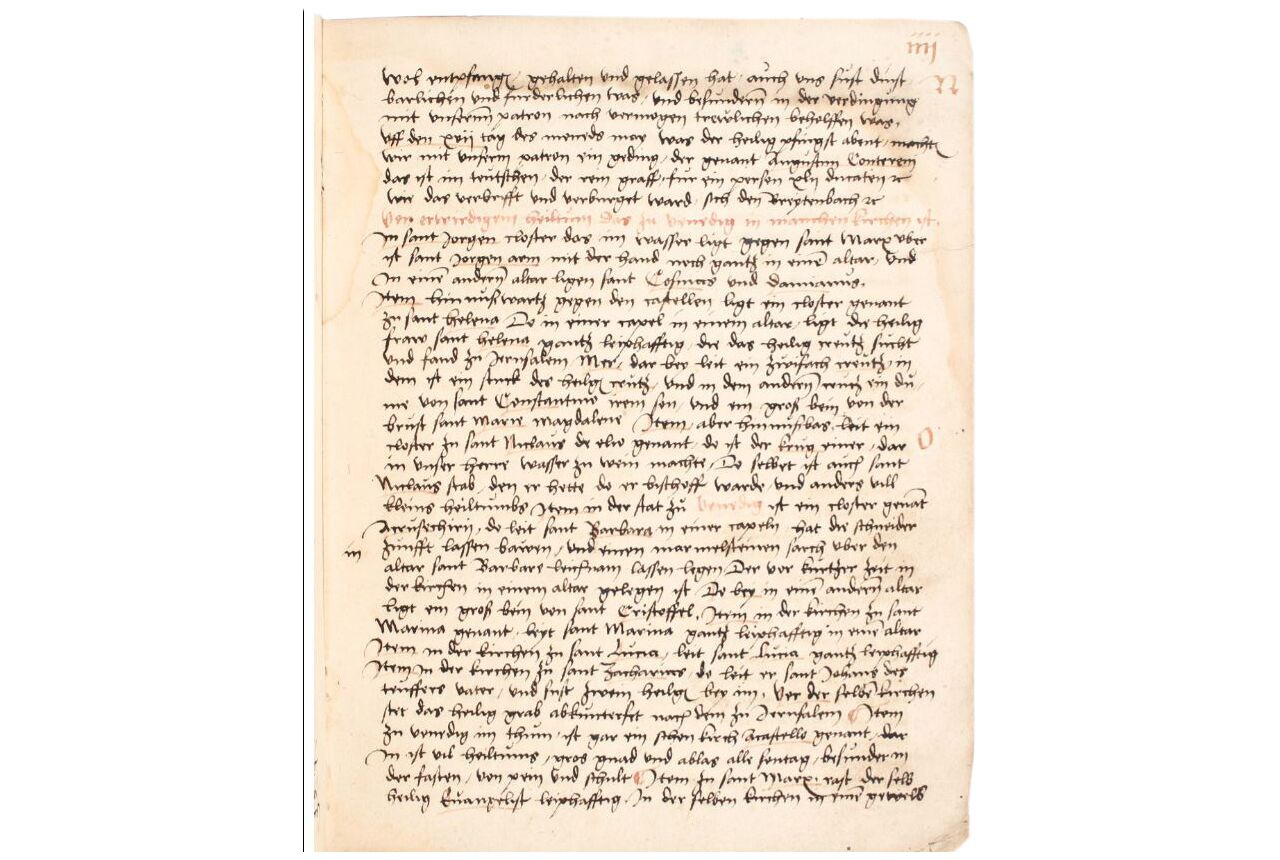 iiij
wol entpfang, gehalten vnd gelassen hat, auch vns sust dinst
barlichen vnd furderlichen was, vnd besundern in der verdingung
mit vnserm patron nach vermogen trewlichen beholffen was,
vff den xvij tag des moneds may was der heilig pfingst abent, machte
wir mit vnserm patron ein geding, der genant Augustin Conteren
das ist im teutschen, der rein graff, fur ein person xln ducaten
wie das verbrifft vnd verburget ward, sich den Breytenbach
Von erwirdigem heiltum das zu venedig in manchen kirchen ist,
In sant Jorgen closter das im wasser ligt gegen sant Marx vber
ist sant Jorgen arm mit der hand noch gantz in eine altar, vnd
in eine andern altar ligen sant Cosmas vnd damianus,
Item hinnußwartz gegen den castellen ligt ein closter genant
zu sant helena Do in einer capel in einem altar, ligt die heilig
fraw sant helena gantz leiphafftig, die das heilig creutz sucht
vnd fand zu Jerusalem Mer, dar bey leit ein zwifach creutz, in
dem ist ein stuck des heilg creutz, vnd in dem andern creutz ein du
me von sant Constantino irem son, vnd ein groß bein von der
brust sant Marie magdalene Item, aber hinnußbas leit ein
closter zu sant Niclaus de elio genant, do ist der krug einer, dar
in vnser herre wasser zu wein machte, Do selbet ist auch sant
Niclaus stab, den er hette do er bischoff warde, vnd anders vill
kleins heiltumbs Item in der stat zu venedig ist ein closter genat
do leit sant Barbara in einer capeln, hat die schneider
in zunfft lassen bawen, vnd einen marmelsteinen sarch vber den
altar sant Barbare leichnam lassen legen, Der vor kurtzer zeit in
der kirchen in einem altar gelegen ist, Do bey in eine andern altar
ligt ein groß bein von sant Cristoffel, Item in der kirchen zu sant
Marina genant, leyt sant Marina gantz leiphafftig in eine altar
Item in der kirchen zu sant Lucia, leit sant Lucia gantz leiphafftig
Item in der kirchen zu sant Zacharias, do leit er sant Johans des
teuffers vater, vnd sust zwen heilg bey im, Vor der selbe kirchen
stet das heilig grab abkunterfet nach dem zu Jerusalem Item
zu venedig im thum, ist gar ein schen kirch Acastello genant, dar
in ist vil heiltums, gros gnad vnd ablas alle sontag, besunder in
der fasten, von pein vnd schult Item zu sant Marx, rast der selb
heilig Euangelist leiphafftig, In der selben kirchen in eine gewelb